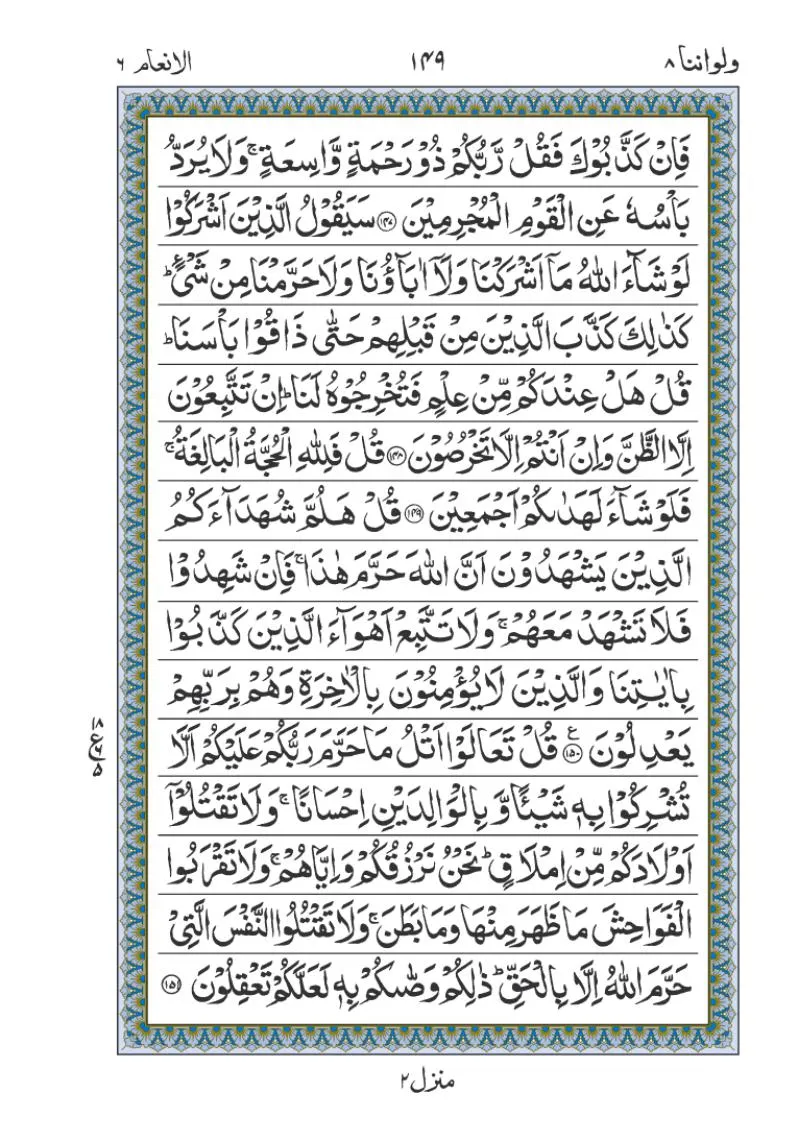 ولواننا ٨ ١٤٩ الانعام ٦
فَاِنْ كَذَّبُوْكَ فَقُلْ رَّبُّكُمْ ذُوْ رَحْمَةٍ وَّاسِعَةٍ ۚ وَلَا يُرَدُّ
بَاْسُهٗ عَنِ الْقَوْمِ الْمُجْرِمِيْنَ ﴿۱۴۷﴾ سَيَقُوْلُ الَّذِيْنَ اَشْرَكُوْا
لَوْ شَآءَ اللّٰهُ مَاۤ اَشْرَكْنَا وَلَاۤ اٰبَآؤُنَا وَلَا حَرَّمْنَا مِنْ شَیْءٍ ؕ
كَذٰلِكَ كَذَّبَ الَّذِيْنَ مِنْ قَبْلِهِمْ حَتّٰى ذَاقُوْا بَاْسَنَا ؕ
قُلْ هَلْ عِنْدَكُمْ مِّنْ عِلْمٍ فَتُخْرِجُوْهُ لَنَا ؕ اِنْ تَتَّبِعُوْنَ
اِلَّا الظَّنَّ وَاِنْ اَنْتُمْ اِلَّا تَخْرُصُوْنَ ﴿۱۴۸﴾ قُلْ فَلِلّٰهِ الْحُجَّةُ الْبَالِغَةُ ۚ
فَلَوْ شَآءَ لَهَدٰىكُمْ اَجْمَعِيْنَ ﴿۱۴۹﴾ قُلْ هَلُمَّ شُهَدَآءَكُمُ
الَّذِيْنَ يَشْهَدُوْنَ اَنَّ اللّٰهَ حَرَّمَ هٰذَا ۚ فَاِنْ شَهِدُوْا
فَلَا تَشْهَدْ مَعَهُمْ ۚ وَلَا تَتَّبِعْ اَهْوَآءَ الَّذِيْنَ كَذَّبُوْا
بِاٰيٰتِنَا وَالَّذِيْنَ لَا يُؤْمِنُوْنَ بِالْاٰخِرَةِ وَهُمْ بِرَبِّهِمْ
يَعْدِلُوْنَ ﴿۱۵۰﴾ ع قُلْ تَعَالَوْا اَتْلُ مَا حَرَّمَ رَبُّكُمْ عَلَيْكُمْ اَلَّا
١٨ ع ٦ ٥
تُشْرِكُوْا بِهٖ شَيْـًٔا وَّبِالْوَالِدَيْنِ اِحْسَانًا ۚ وَلَا تَقْتُلُوْۤا
اَوْلَادَكُمْ مِّنْ اِمْلَاقٍ ؕ نَحْنُ نَرْزُقُكُمْ وَاِيَّاهُمْ ۚ وَلَا تَقْرَبُوا
الْفَوَاحِشَ مَا ظَهَرَ مِنْهَا وَمَا بَطَنَ ۚ وَلَا تَقْتُلُوا النَّفْسَ الَّتِیْ
حَرَّمَ اللّٰهُ اِلَّا بِالْحَقِّ ؕ ذٰلِكُمْ وَصّٰىكُمْ بِهٖ لَعَلَّكُمْ تَعْقِلُوْنَ ﴿۱۵۱﴾
منزل ٢